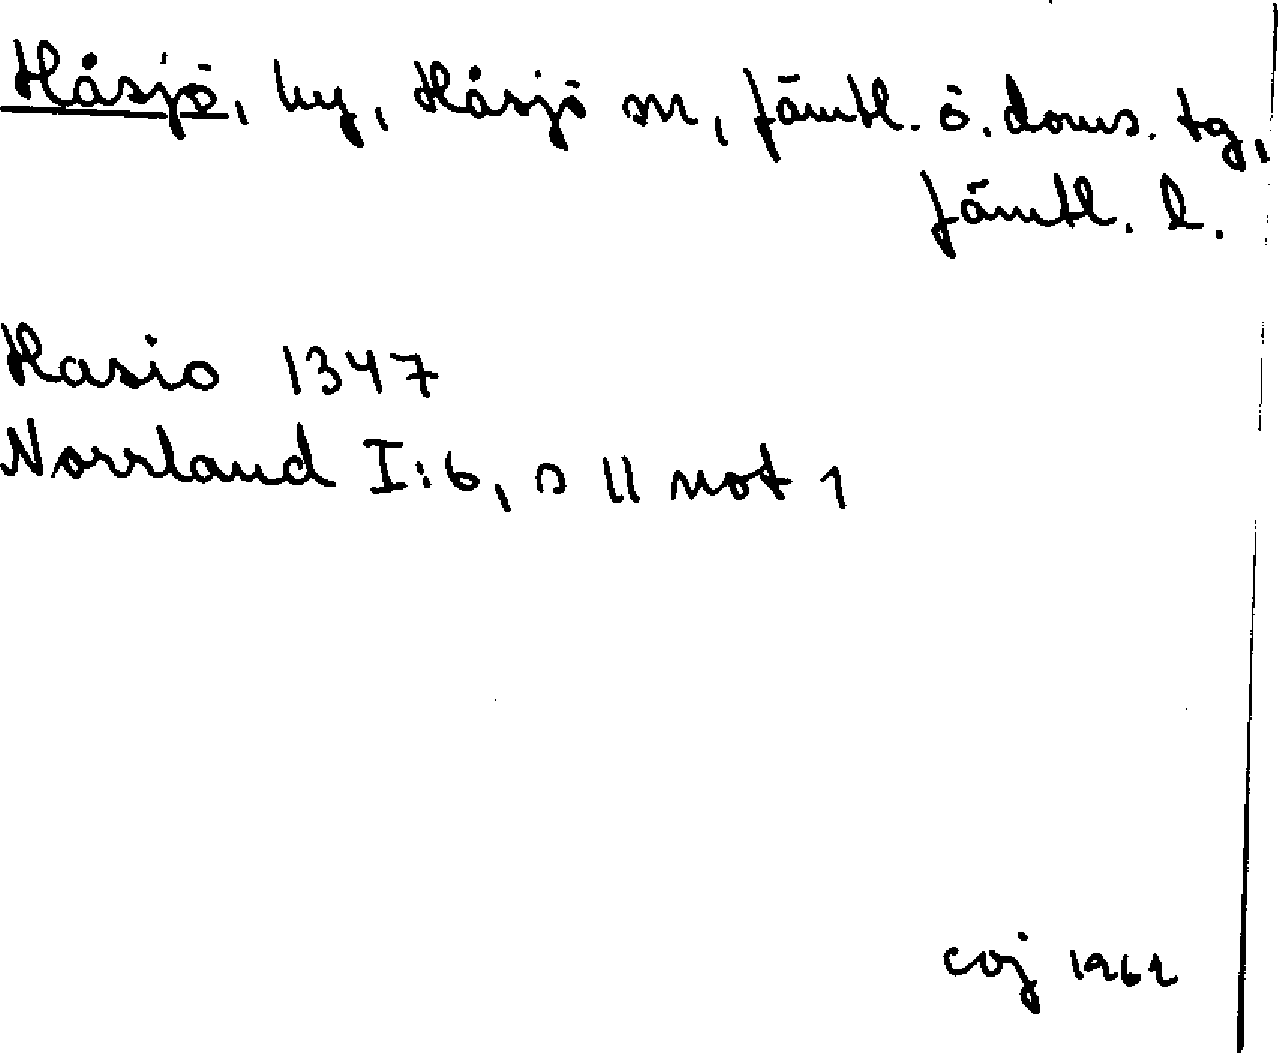 Håsjö, by, Håsjö sn, Jämtl. ö. doms. tg,
Jämtl. l.
Hasio 1347
Norrland I:6, s 11 not 1
coj 1962